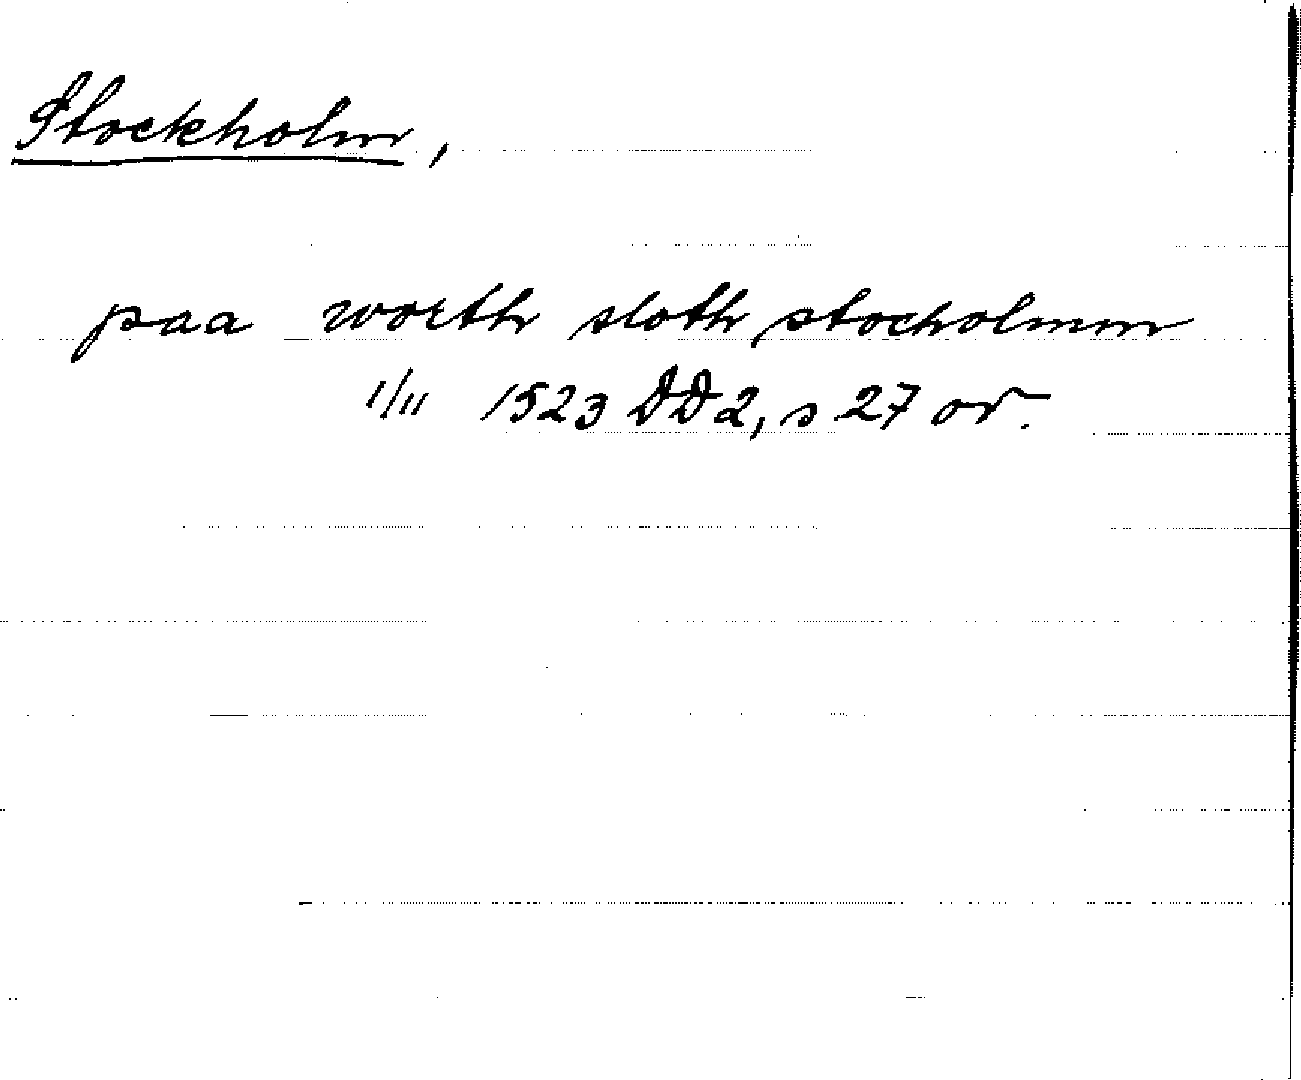 Stockholm,
paa worth sloth stocholmm
1/11 1523 DD2, s 27 or.